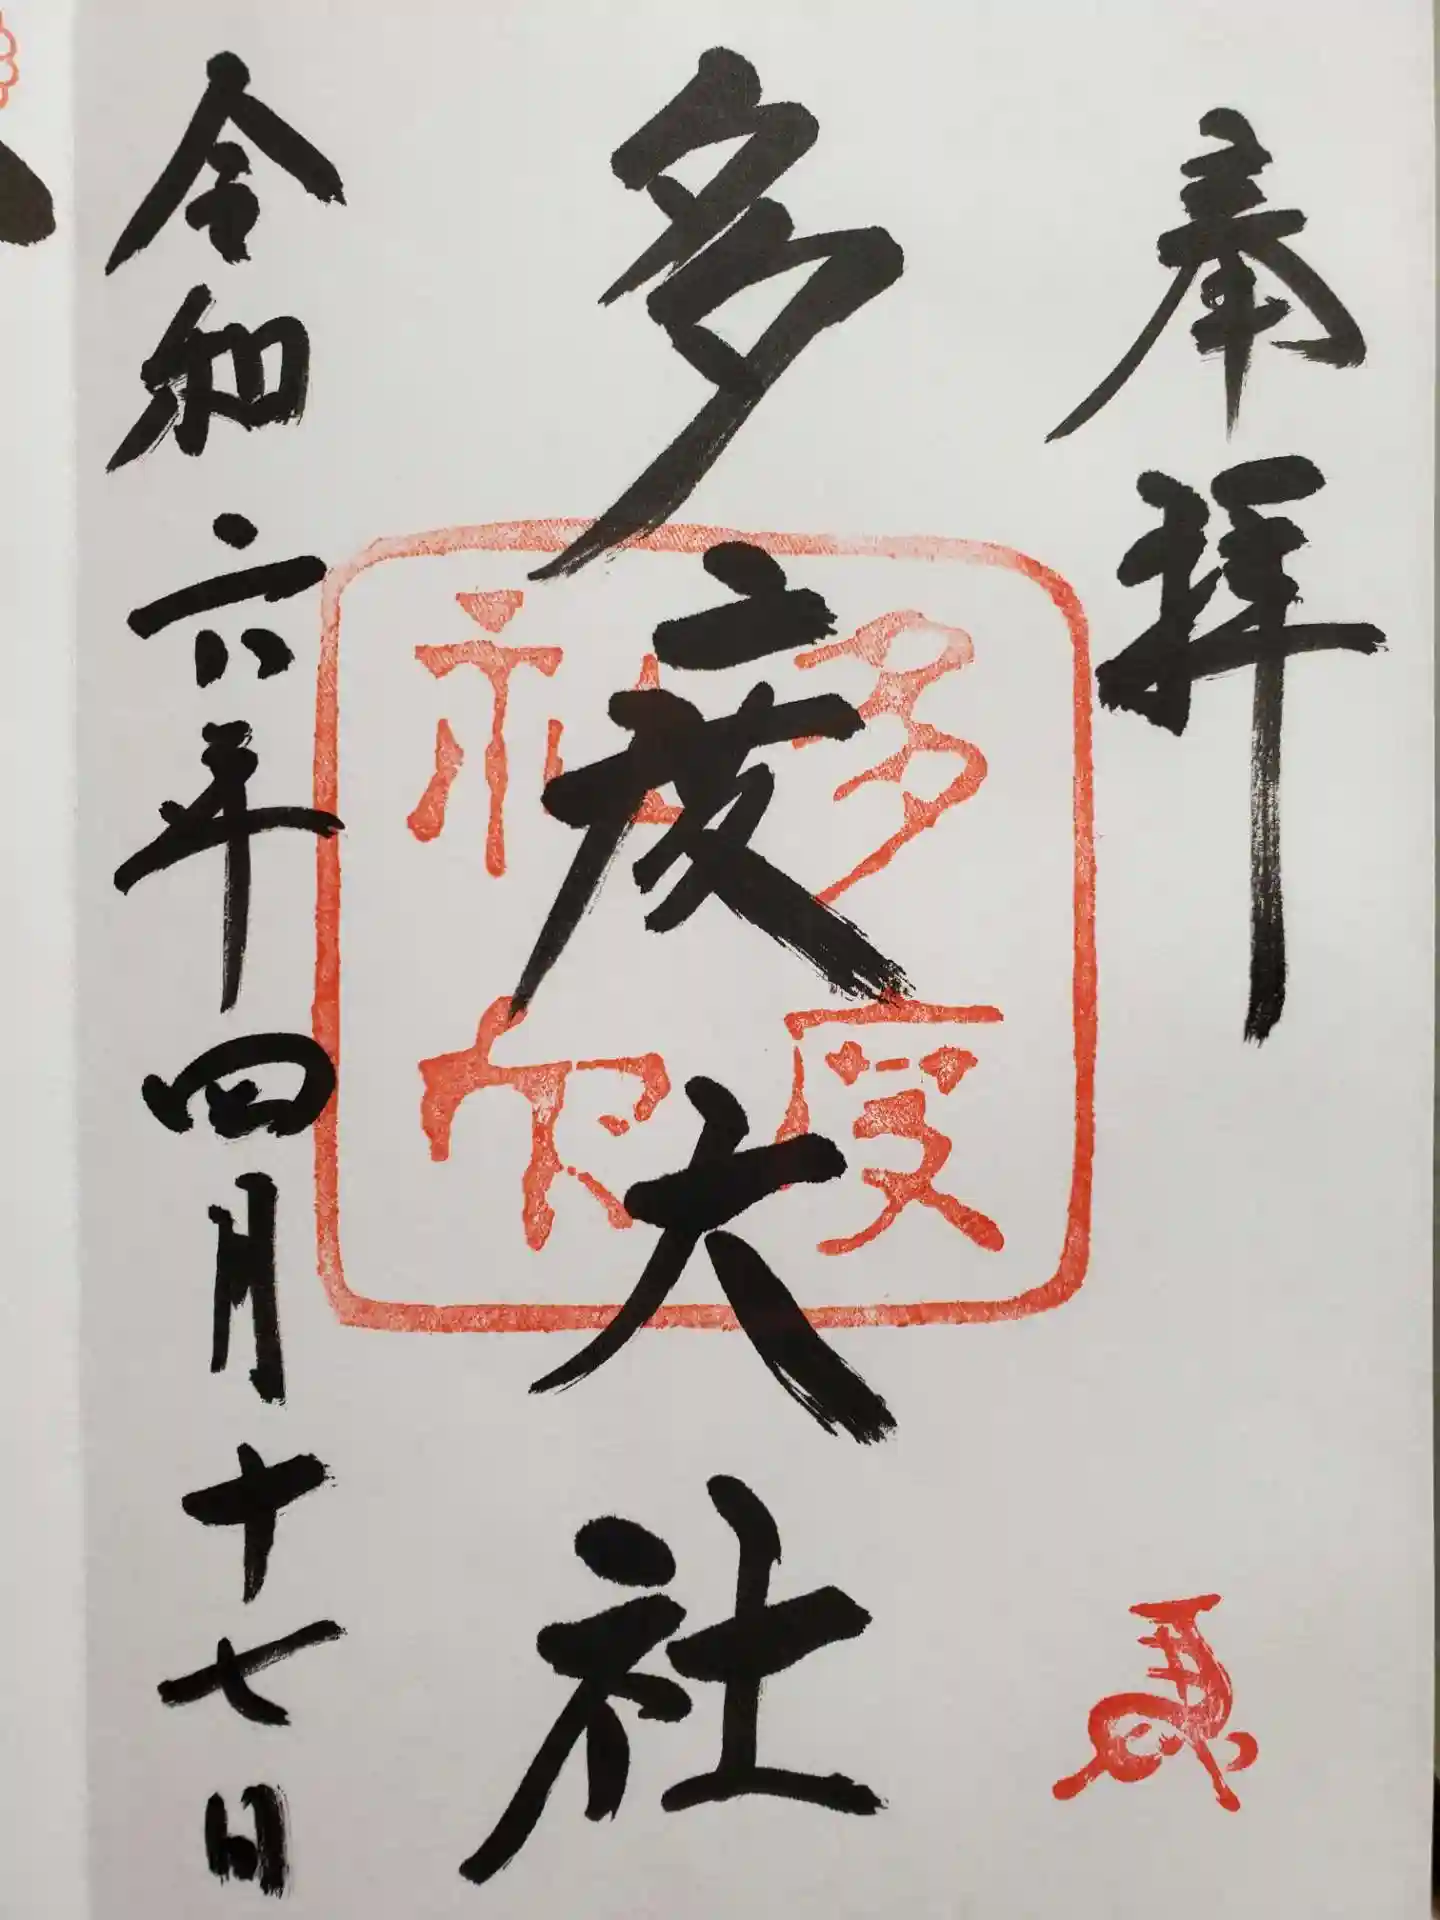 奉拝
多度大社
令和六年四月十七日
多度
社印
馬